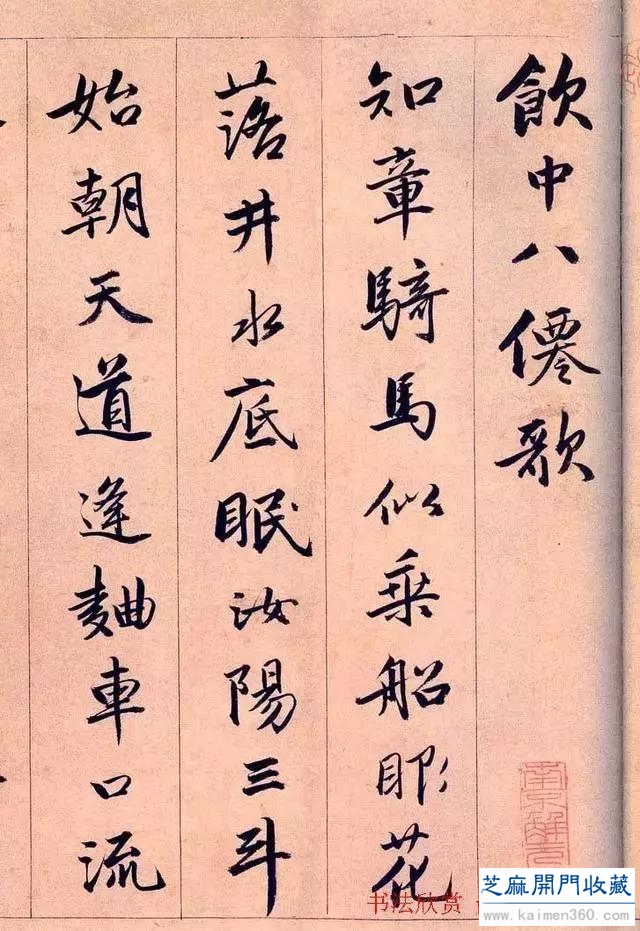 飲中八僊歌
知章騎馬似乗船眼花
落井水底眠汝陽三斗
始朝天道逢麯車口流
书法欣赏
芝麻開門收藏
www.kaimen360.com